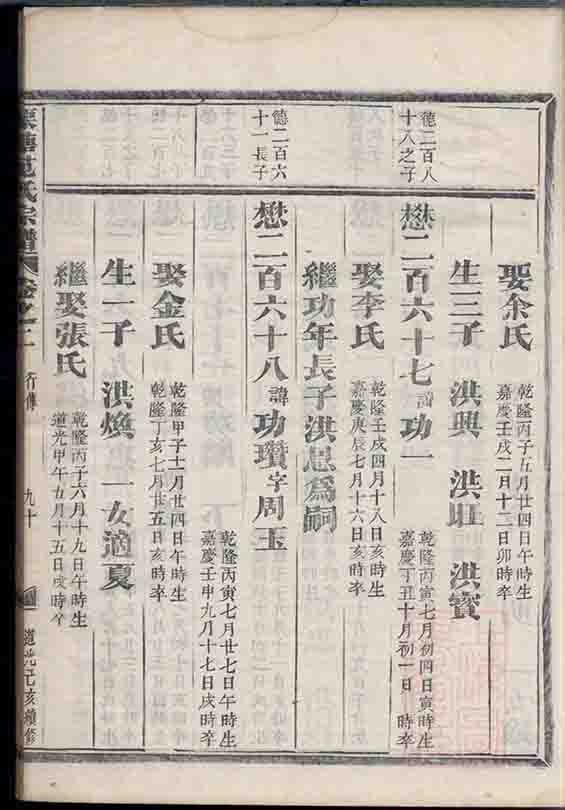 娶余氏
乾隆丙子五月廿四日午時生
嘉慶壬戌二月十二日卯時卒
生三子 洪興 洪旺 洪寳
德二百八
十八之子
懋二百六十七諱功一
乾隆丙寅七月初四日寅時生
嘉慶丁丑十月初一日 時卒
娶李氏
乾隆壬戌四月十八日亥時生
嘉慶庚辰七月十六日亥時卒
繼功年長子洪恩為嗣
德二百六
十一長子
懋二百六十八諱功瓚字周玉
乾隆丙寅七月廿七日午時生
嘉慶壬申九月十七日戌時卒
娶金氏
乾隆甲子十一月廿四日午時生
乾隆丁亥七月廿五日亥時卒
生一子 洪煥 一女適夏
繼娶張氏
乾隆丙子六月十九日午時生
道光甲午五月十五日戌時卒
氏宗譜 卷之二 行傳 九十 道光己亥續修